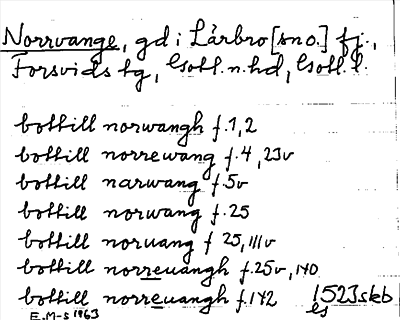 Norrvange, gd i Lärbro [sn o.] fj.,
Forsvids tg, Gotl. n. hd, Gotl. l.
bottill norwangh f. 1, 2
bottill norrewang f. 4, 23v
bottill narwang f. 5v
bottill norwang f. 25
bottill noruang f 25, 111v
bottill norreuangh f. 25v, 140
bottill norreuangh f. 142 1523 skb
E. M-s 1963